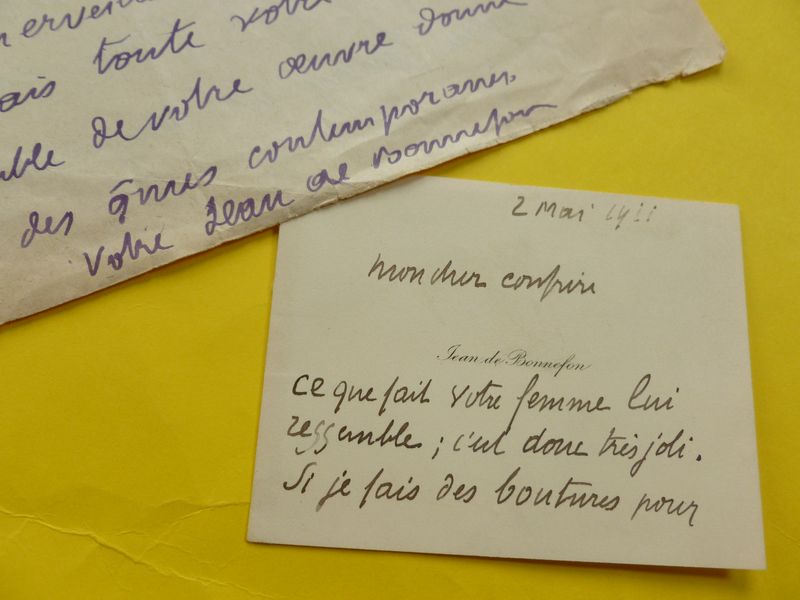 merveil
ais toute votre
ble de votre œuvre donne
des âmes contemporaines
Votre Jean de Bonnefon
2 Mai
mon cher confrère
Jean de Bonnefon
ce que fait votre femme lui
ressemble ; c'est donc très joli.
Si je fais des boutures pour